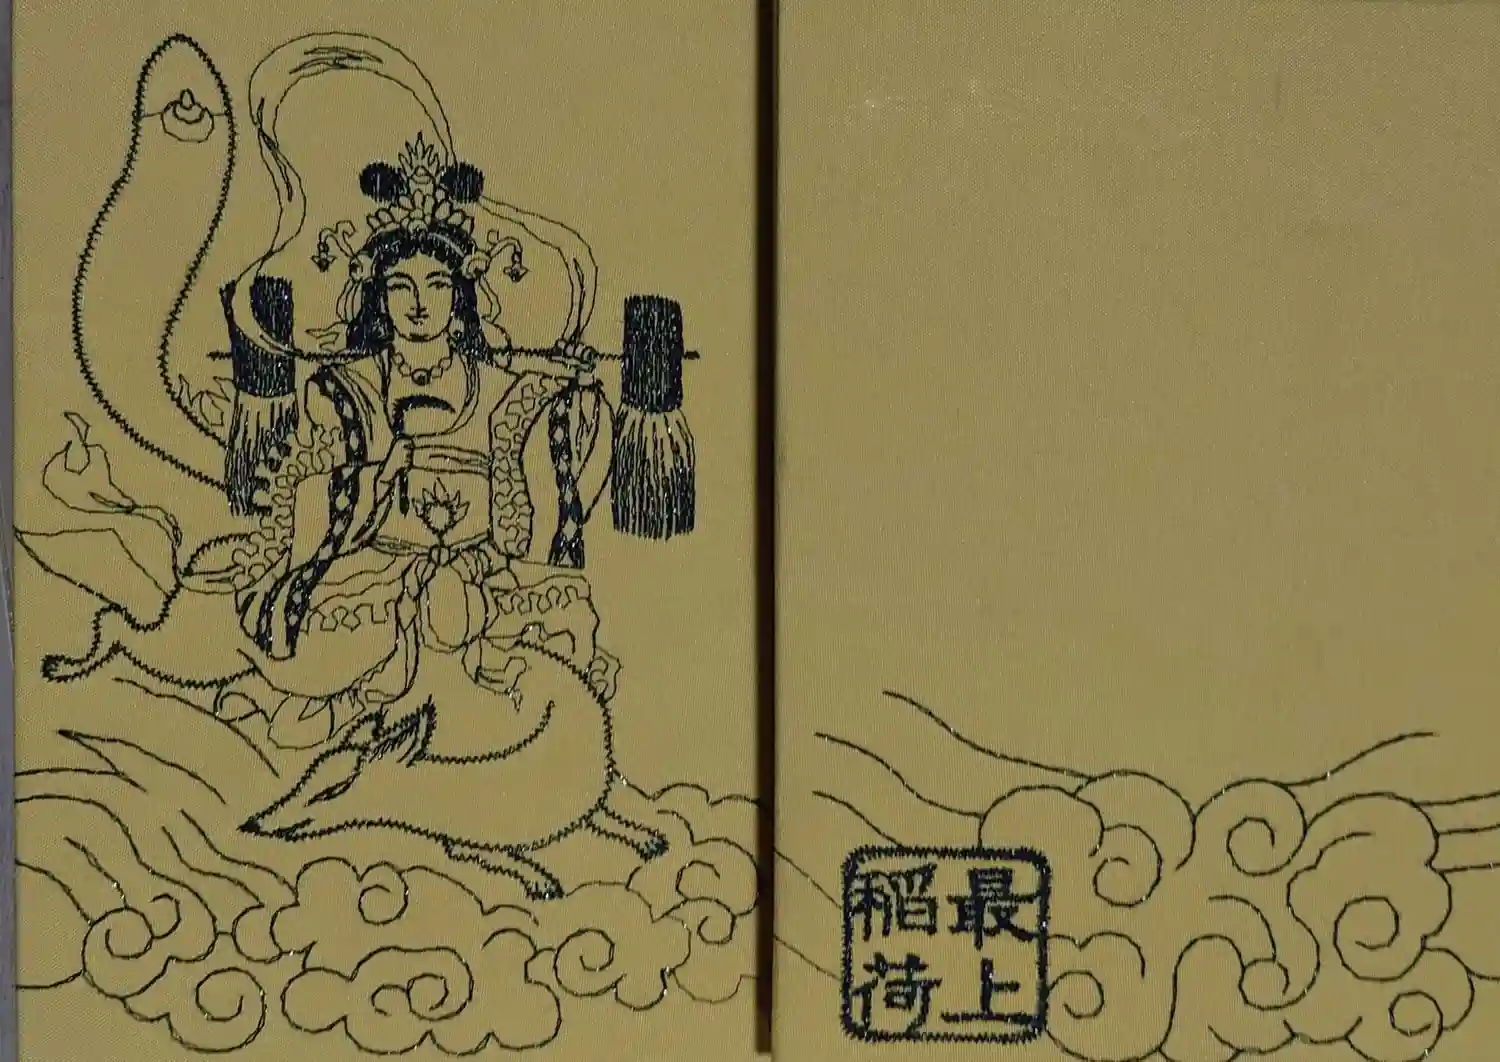 最上
稲荷